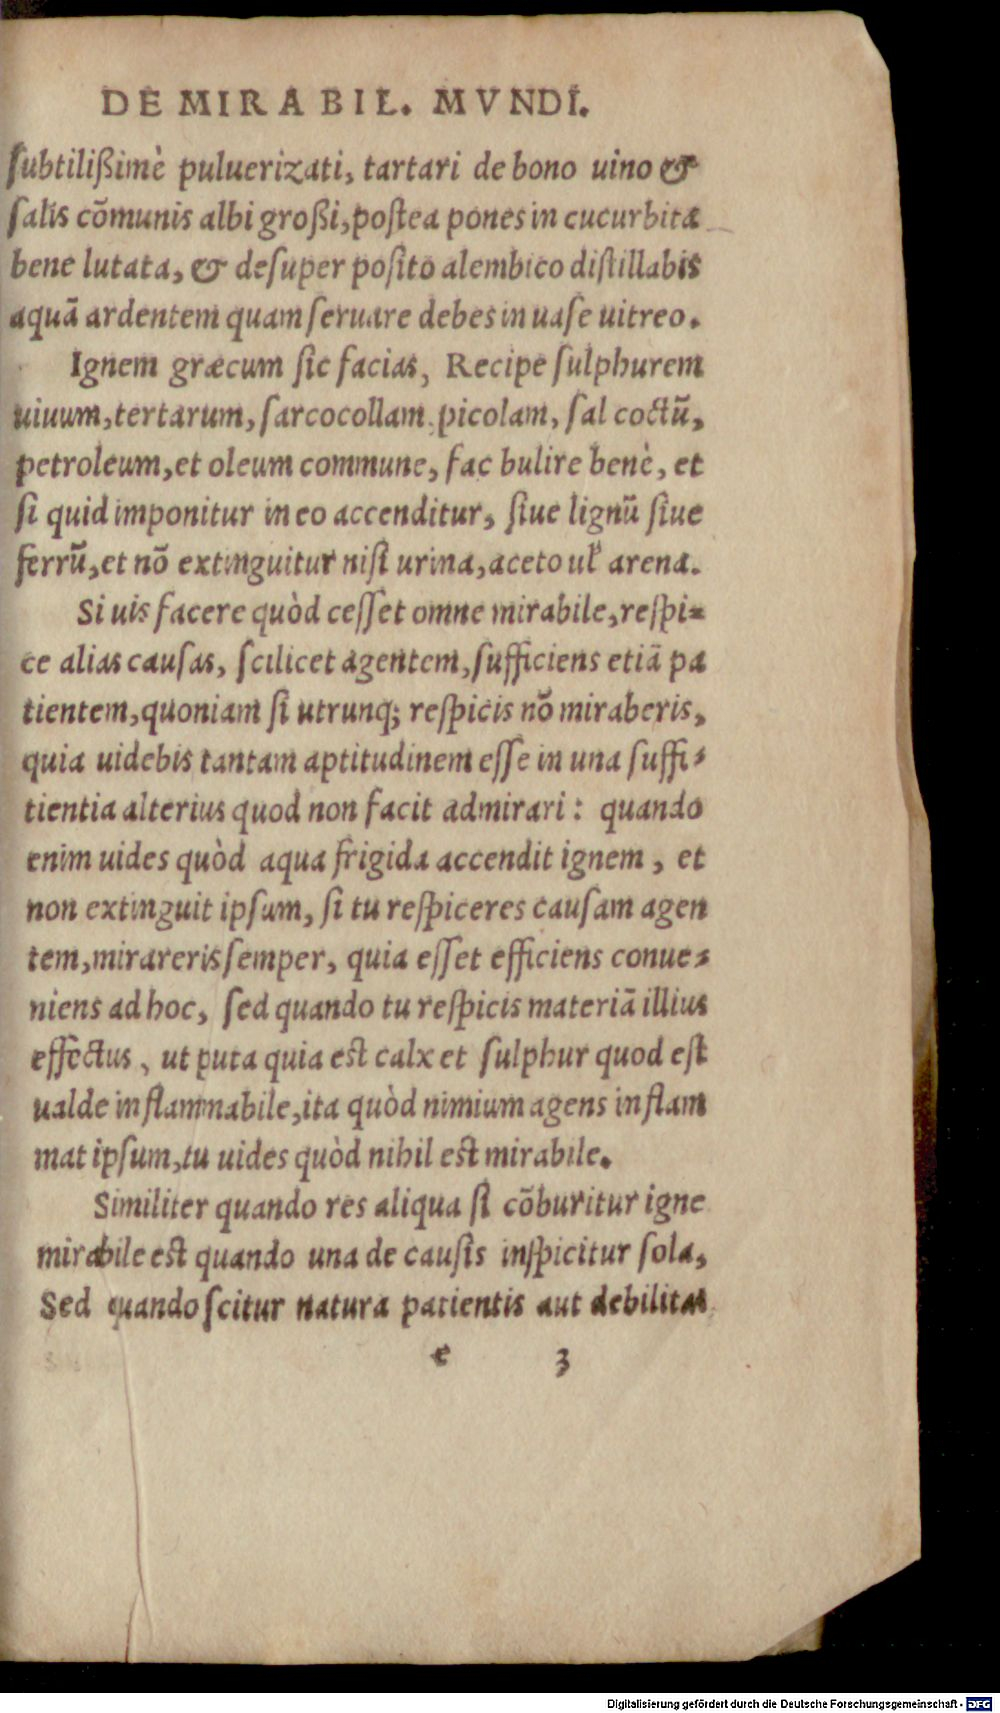 DE MIRABIL. MVNDI.
ſubtilißimè puluerizati, tartari de bono uino &
ſalis cõmunis albi großi, poſtea pones in cucurbita
bene lutata, & deſuper poſito alembico diſtillabis
aquã ardentem quam ſeruare debes in uaſe uitreo.
Ignem græcum ſic facias, Recipe ſulphurem
uiuum, tertarum, ſarcocollam, picolam, ſal coctũ,
petroleum, et oleum commune, fac bulire benè, et
ſi quid imponitur in eo accenditur, ſiue lignũ ſiue
ferrũ, et nõ extinguitur niſi urina, aceto ul' arena.
Si uis facere quòd ceſſet omne mirabile, reſpi-
ce alias cauſas, ſcilicet agentem, ſufficiens etiã pa
tientem, quoniam ſi utrunq; reſpicis nõ miraberis,
quia uidebis tantam aptitudinem eſſe in una ſuffi-
tientia alterius quod non facit admirari: quando
enim uides quòd aqua frigida accendit ignem, et
non extinguit ipſum, ſi tu reſpiceres cauſam agen
tem, mirareris ſemper, quia eſſet efficiens conue-
niens ad hoc, ſed quando tu reſpicis materiã illius
effectus, ut puta quia est calx et ſulphur quod eſt
ualde inflammabile, ita quòd nimium agens inflam
mat ipſum, tu uides quòd nihil est mirabile.
Similiter quando res aliqua ſi cõburitur igne
mirabile est quando una de cauſis inſpicitur ſola,
Sed quando ſcitur natura patientis aut debilitas
e 3
Digitalisierung gefördert durch die Deutsche Forschungsgemeinschaft - DFG